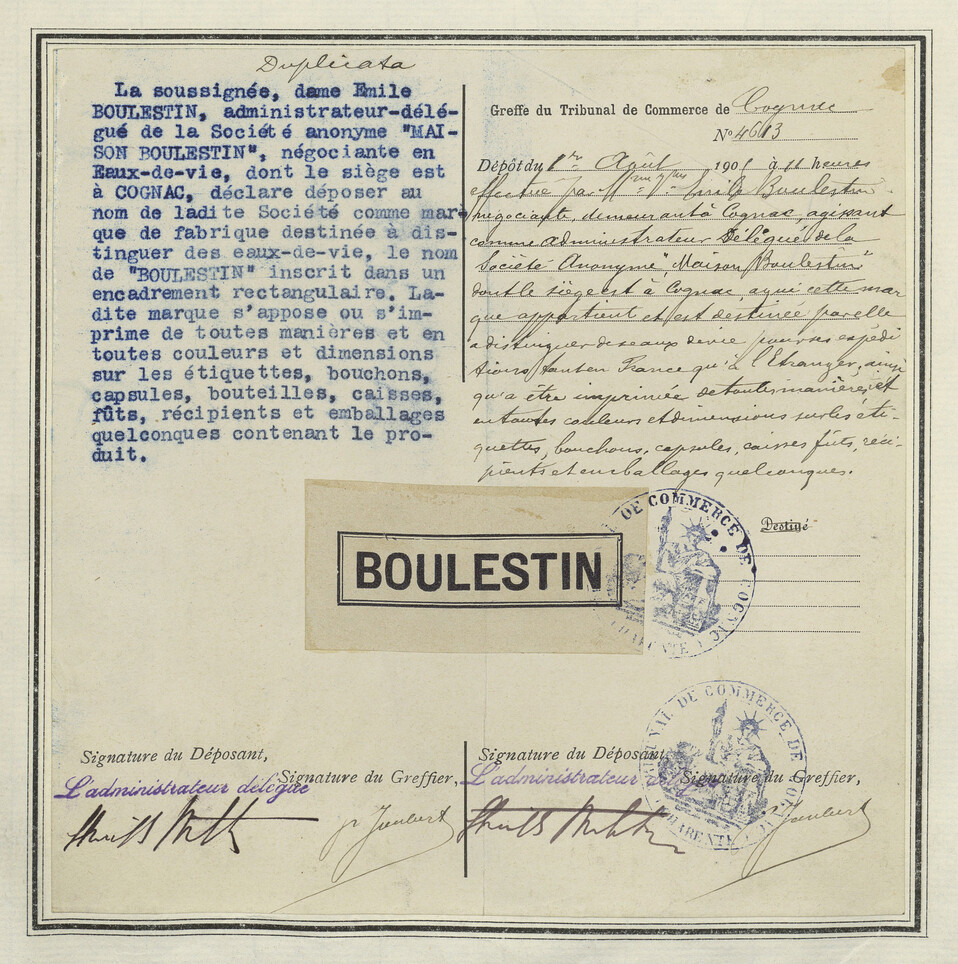 Duplicata
La soussignée, dame Emile
BOULESTIN, administrateur-délé-
gué de la Société anonyme "MAI-
SON BOULESTIN", négociante en
Eaux-de-vie, dont le siège est
à COGNAC, déclare déposer au
nom de ladite Société comme mar-
que de fabrique destinée à dis-
tinguer des eaux-de-vie, le nom
de "BOULESTIN" inscrit dans un
encadrement rectangulaire. La-
dite marque s'appose ou s'im-
prime de toutes manières et en
toutes couleurs et dimensions
sur les étiquettes, bouchons,
capsules, bouteilles, caisses,
fûts, récipients et emballages
quelconques contenant le pro-
duit.
Greffe du Tribunal de Commerce de Cognac
No 4613
Dépôt du 1er Août 190 à 11 heures
effectué par Emile Boulestin
négociante, demeurant à Cognac, agissant
comme administrateur Délégué de la
Société Anonyme "Maison Boulestin"
dont le siège est à Cognac, a qui cette mar
que appartient et est destinée par elle
a distinguer des eaux de vie pour ses expédi
tions tant en France qu'à l'Etranger, ainsi
qu'a être imprimée de toutes manières et
en toutes couleurs et dimensions sur les éti-
quettes, bouchons, capsules, caisses fûts, réci-
pients et emballages quelconques.
BOULESTIN
TRIBUNAL DE COMMERCE DE COGNAC
CHARENTE
Destiné
Signature du Déposant,
L'administrateur délégué
Signature du Greffier,
Joubert
Signature du Déposant
L'administrateur délégué
Signature du Greffier,
Joubert
TRIBUNAL DE COMMERCE DE COGNAC
CHARENTE